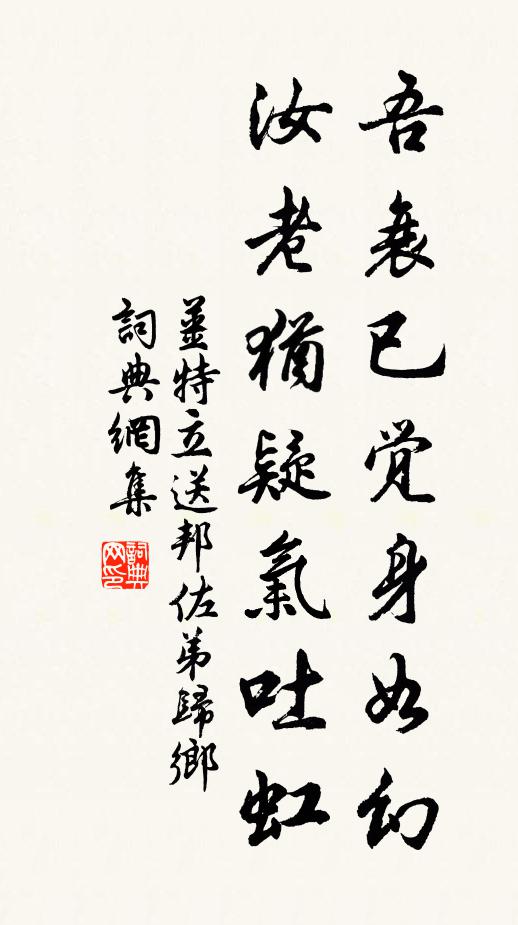 吾衰已觉身如幻
汝老猶疑氣吐虹
薑特立送邦佐弟歸鄉
詞典網集
詞典网印